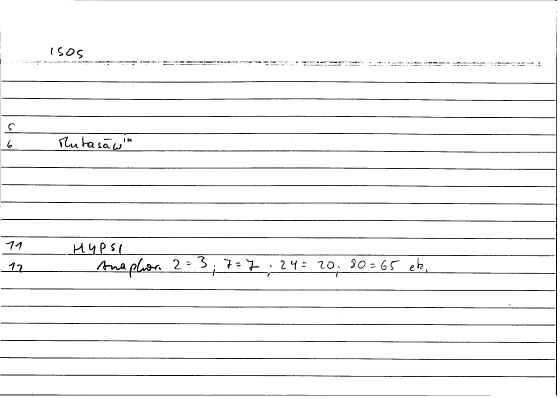 ISOS
5
6 Mutasāwin
11 HYPSI
12 Anaphor. 2=3; 7=7; 24=20; 80=65 etc.